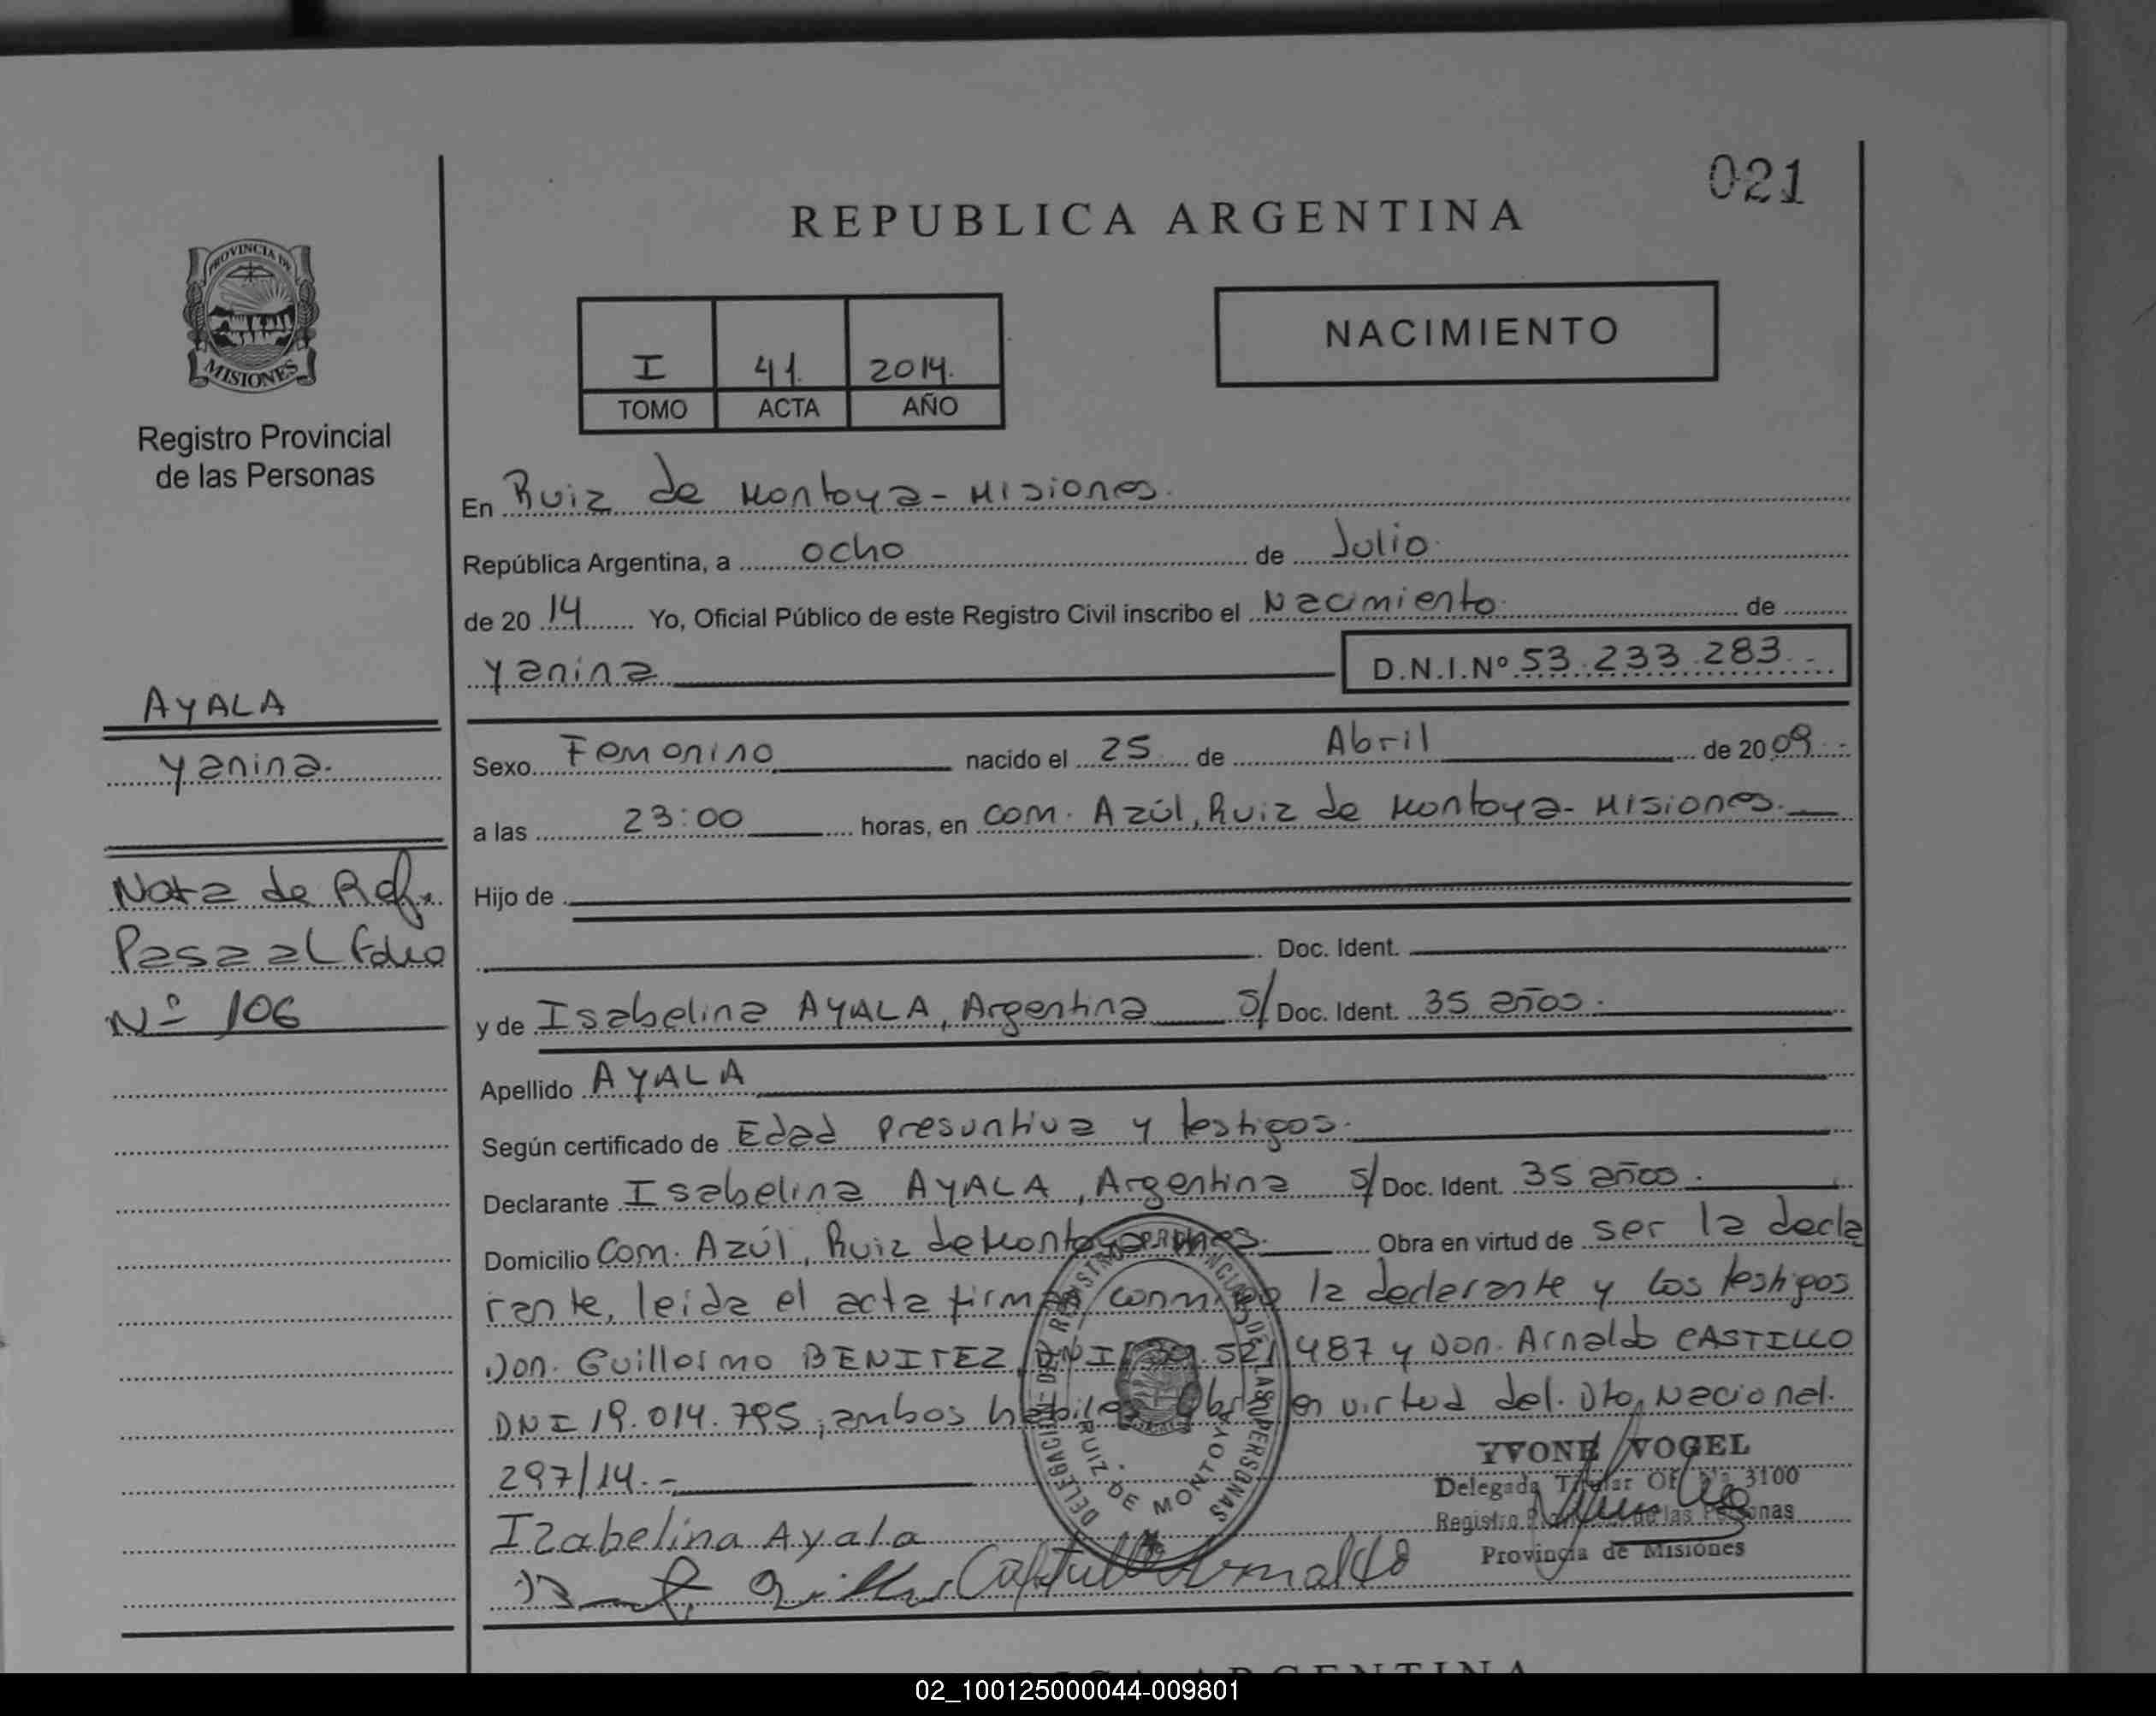 021
REPUBLICA ARGENTINA
PROVINCIA DE
MISIONES
Registro Provincial
de las Personas
NACIMIENTO
I 41. 2014.
TOMO ACTA AÑO
En Ruiz de Montoya - Misiones.
República Argentina, a ocho de Julio
de 2014 Yo, Oficial Público de este Registro Civil inscribo el Nacimiento de
Yanina D.N.I.Nº 53.233.283.-
AYALA
Yanina.
Sexo Femenino nacido el 25 de Abril de 2009.-
a las 23:00 horas, en Com. Azúl, Ruiz de Montoya - Misiones.
Nota de Ref.
Pasa al folio
Nº 106
Hijo de
Doc. Ident.
y de Isabelina AYALA, Argentina S/ Doc. Ident. 35 años.
Apellido AYALA
Según certificado de Edad presuntiva y testigos.
Declarante Isabelina AYALA, Argentina S/ Doc. Ident. 35 años.
Domicilio Com. Azúl, Ruiz de Montoya Obra en virtud de ser la decla
rante, leida el acta firman conmigo la declarante y los testigos
Don. Guillermo BENITEZ, DNI 39.521.487 y Don. Arnaldo CASTILLO
DNI 19.014.795, ambos habiles. Obra en virtud del. Dto. Nacional.
297/14.-
DELEGACION DEL REGISTRO PROVINCIAL DE LAS PERSONAS
RUIZ DE MONTOYA
YVONE VOGEL
Delegada Titular Of. Nº 3100
Registro Provincial de las Personas
Provincia de Misiones
Izabelina Ayala
Castillo Arnaldo
REPUBLICA ARGENTINA
02_100125000044-009801